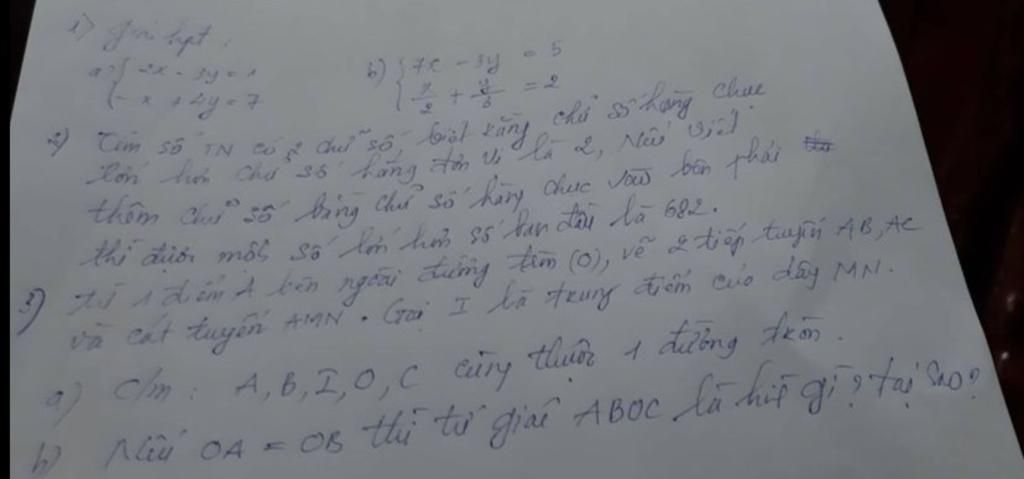 1) Giải hpt:
a) { 2x - 3y = 1
{ -x + 4y = 7
b) { 7x - 3y = 5
{ x/2 + y/3 = 2
2) Tìm số TN có 2 chữ số, biết rằng chữ số hàng chục
lớn hơn chữ số hàng đơn vị là 2, Nếu viết
thêm chữ số bằng chữ số hàng chục vào bên phải
thì được một số lớn hơn số ban đầu là 682.
3) Từ 1 điểm A bên ngoài đường tròn (O), vẽ 2 tiếp tuyến AB, AC
và cát tuyến AMN. Gọi I là trung điểm của dây MN.
a) C/m: A, B, I, O, C cùng thuộc 1 đường tròn.
b) Nếu OA = OB thì tứ giác ABOC là hình gì? Tại sao?